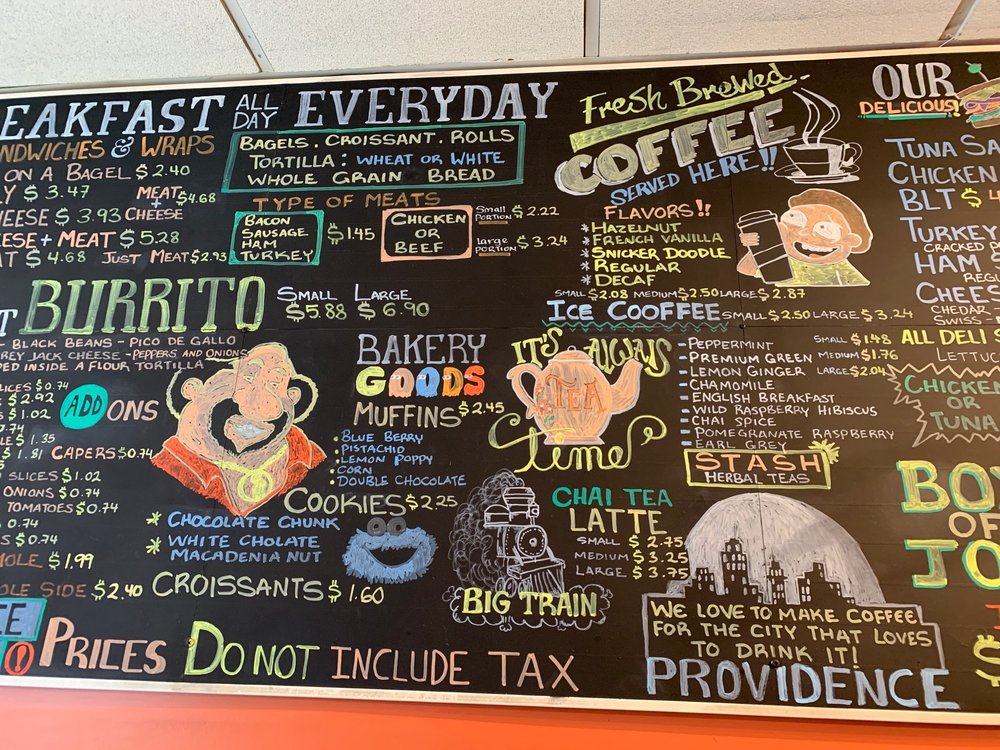 EAKFAST ALL DAY EVERYDAY
NDWICHES & WRAPS
ON A BAGEL $2.40
Y $3.47
MEAT + CHEESE $4.68
HEESE $3.93
ESE + MEAT $5.28
AT $4.68 JUST MEAT $2.93
BAGELS. CROISSANT. ROLLS
TORTILLA: WHEAT OR WHITE
WHOLE GRAIN BREAD
TYPE OF MEATS
BACON
SAUSAGE
HAM
TURKEY
$1.45
CHICKEN
OR
BEEF
Small PORTION $2.22
large PORTION $3.24
BURRITO
SMALL LARGE
$5.88 $6.90
BLACK BEANS - PICO DE GALLO
REY JACK CHEESE - PEPPERS AND ONIONS
PED INSIDE A FLOUR TORTILLA
LICES $0.74
S $2.92
S $1.02
0.74
LE $1.35
$1.81 CAPERS $0.74
SLICES $1.02
ONIONS $0.74
TOMATOES $0.74
0.74
S $0.74
OLE $1.99
OLE SIDE $2.40
ADD ONS
BAKERY
GOODS
MUFFINS $2.45
BLUE BERRY
PISTACHIO
LEMON POPPY
CORN
DOUBLE CHOCOLATE
COOKIES $2.25
* CHOCOLATE CHUNK
* WHITE CHOLATE
MACADENIA NUT
CROISSANTS $1.60
PRICES DO NOT INCLUDE TAX
FRESH BREWED
COFFEE
SERVED HERE!!
FLAVORS!!
* HAZELNUT
* FRENCH VANILLA
* SNICKER DOODLE
* REGULAR
* DECAF
SMALL $2.08 MEDIUM $2.50 LARGE $2.87
ICE COOFFEE SMALL $2.50 LARGE $3.24
IT'S ALWAYS
TEA
Time
- PEPPERMINT
- PREMIUM GREEN
- LEMON GINGER
- CHAMOMILE
- ENGLISH BREAKFAST
- WILD RASPBERRY HIBISCUS
- CHAI SPICE
- POMEGRANATE RASPBERRY
- EARL GREY
SMALL $1.48
MEDIUM $1.76
LARGE $2.04
STASH
HERBAL TEAS
CHAI TEA
LATTE
SMALL $2.75
MEDIUM $3.25
LARGE $3.75
BIG TRAIN
WE LOVE TO MAKE COFFEE
FOR THE CITY THAT LOVES
TO DRINK IT!
PROVIDENCE
OUR
DELICIOUS!
TUNA SA
CHICKEN
BLT $
TURKEY
CRACKED P
HAM &
REGU
CHEES
CHEDAR
SWISS -
ALL DELI S
LETTUC
CHICKE
OR
TUNA
BO
OF
JO
$